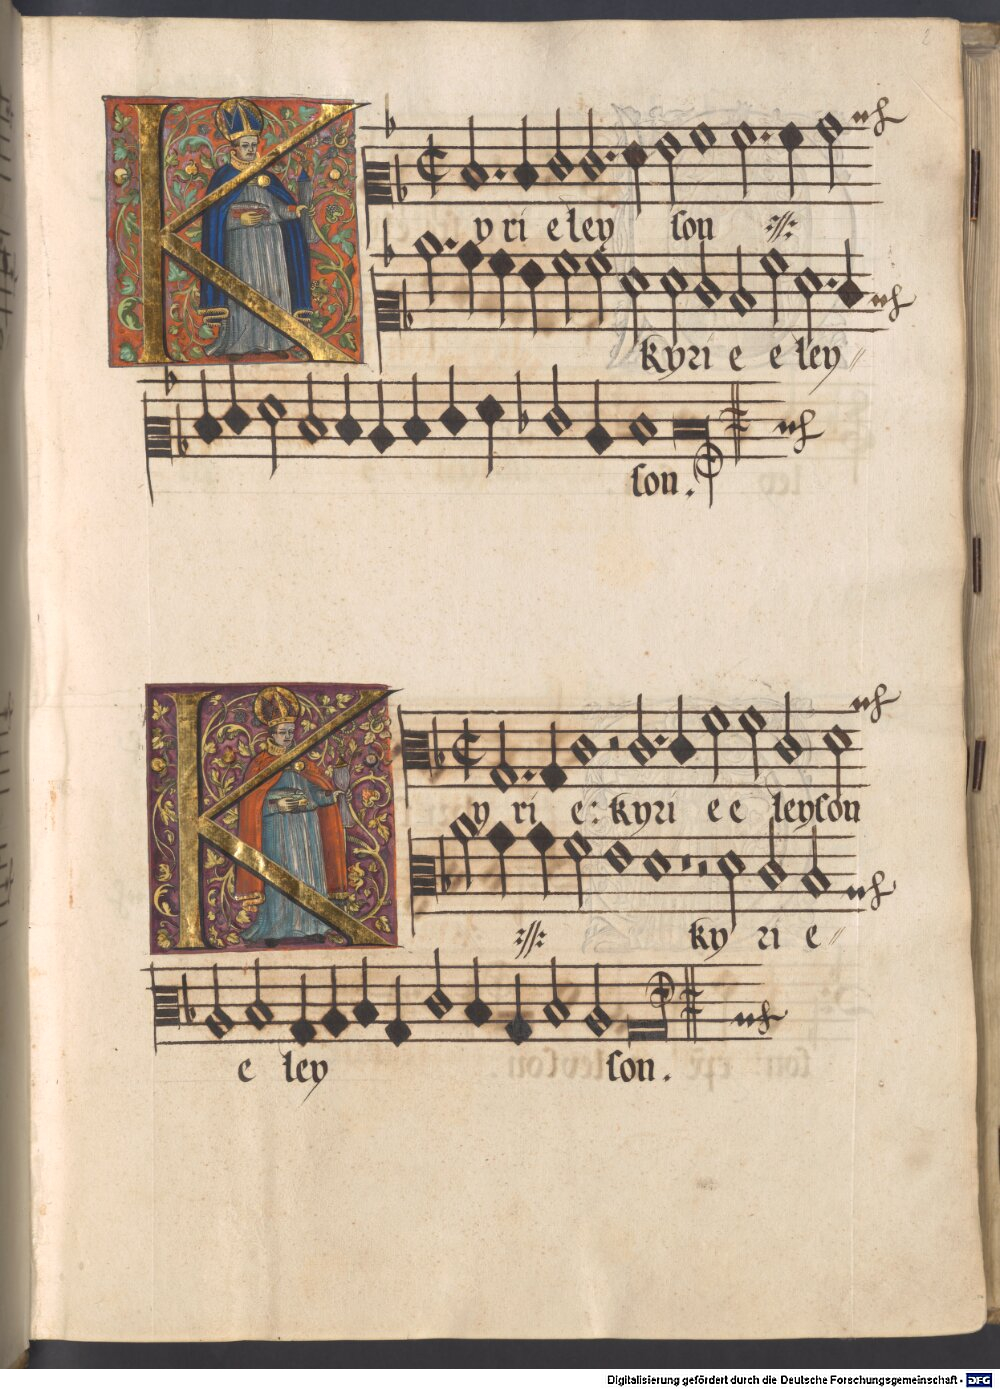 K yri eley son
kyri e eley
son.
K y ri e: kyri e e leyson
ky ri e
e ley son.
Digitalisierung gefördert durch die Deutsche Forschungsgemeinschaft - DFG